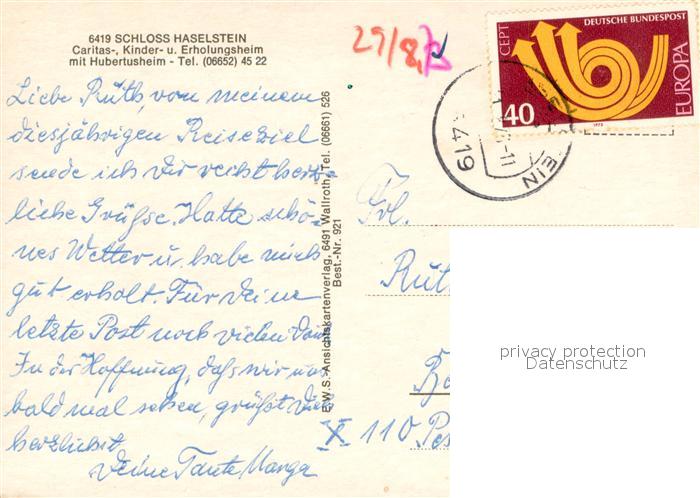 6419 SCHLOSS HASELSTEIN
Caritas-, Kinder- u. Erholungsheim
mit Hubertusheim - Tel. (06652) 45 22
29/8.
DEUTSCHE BUNDESPOST
CEPT
EUROPA
40
1973
6419
EIN
Liebe Ruth, von meinem
diesjährigen Reiseziel
sende ich Dir recht herz-
liche Grüße. Hatte schö-
nes Wetter u. habe mich
gut erholt. Für Deine
letzte Post noch vielen Dank
In der Hoffnung, daß wir uns
bald mal sehen, grüßt Dich
herzlichst
Deine Tante Marga
F.W.S.-Ansichtskartenverlag, 6491 Wallroth, Tel. (06661) 526
Best.-Nr. 921
Frl.
Ruth
X 110
privacy protection
Datenschutz